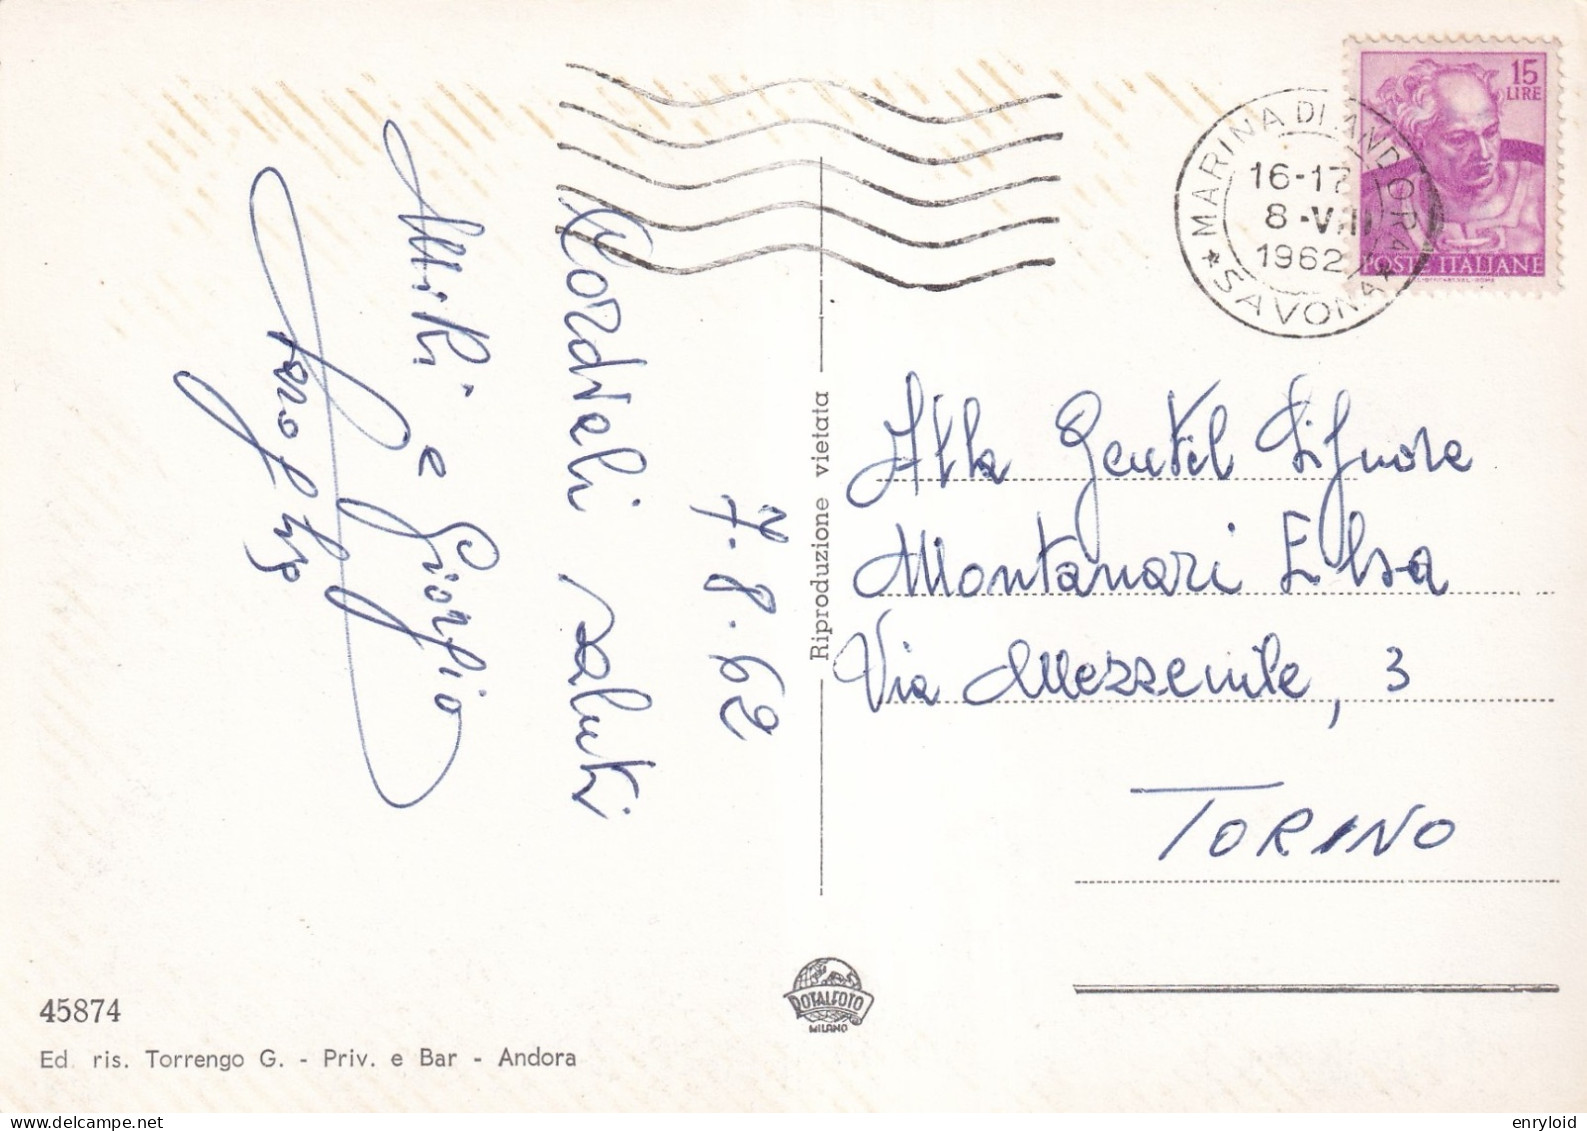 7.8.62
Cordiali saluti
Miki e Giorgio
Riproduzione vietata
15
LIRE
POSTE ITALIANE
MARINA DI ANDORA
16-17
8-VIII
1962
* SAVONA *
Alla Gentil Signora
Montanari Elsa
Via Mezzenile, 3
TORINO
ROTALFOTO
MILANO
45874
Ed. ris. Torrengo G. - Priv. e Bar - Andora
enryloid